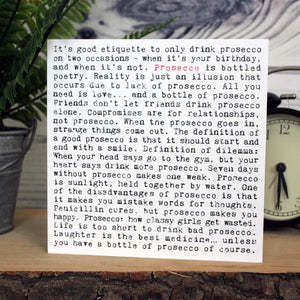 It's good etiquette to only drink prosecco
on two occasions - when it's your birthday,
and when it's not. Prosecco is bottled
poetry. Reality is just an illusion that
occurs due to lack of prosecco. All you
need is love... and a bottle of prosecco.
Friends don't let friends drink prosecco
alone. Compromises are for relationships,
not prosecco. When the prosecco goes in,
strange things come out. The definition of
a good prosecco is that it should start and
end with a smile. Definition of dilemma:
When your head says go to the gym, but your
heart says drink more prosecco. Seven days
without prosecco makes one weak. Prosecco
is sunlight, held together by water. One
of the disadvantages of prosecco is that
it makes you mistake words for thoughts.
Penicillin cures, but prosecco makes you
happy. Prosecco: how clamsy girls get wasted.
Life is too short to drink bad prosecco.
Laughter is the best medicine... unless
you have a bottle of prosecco of course.